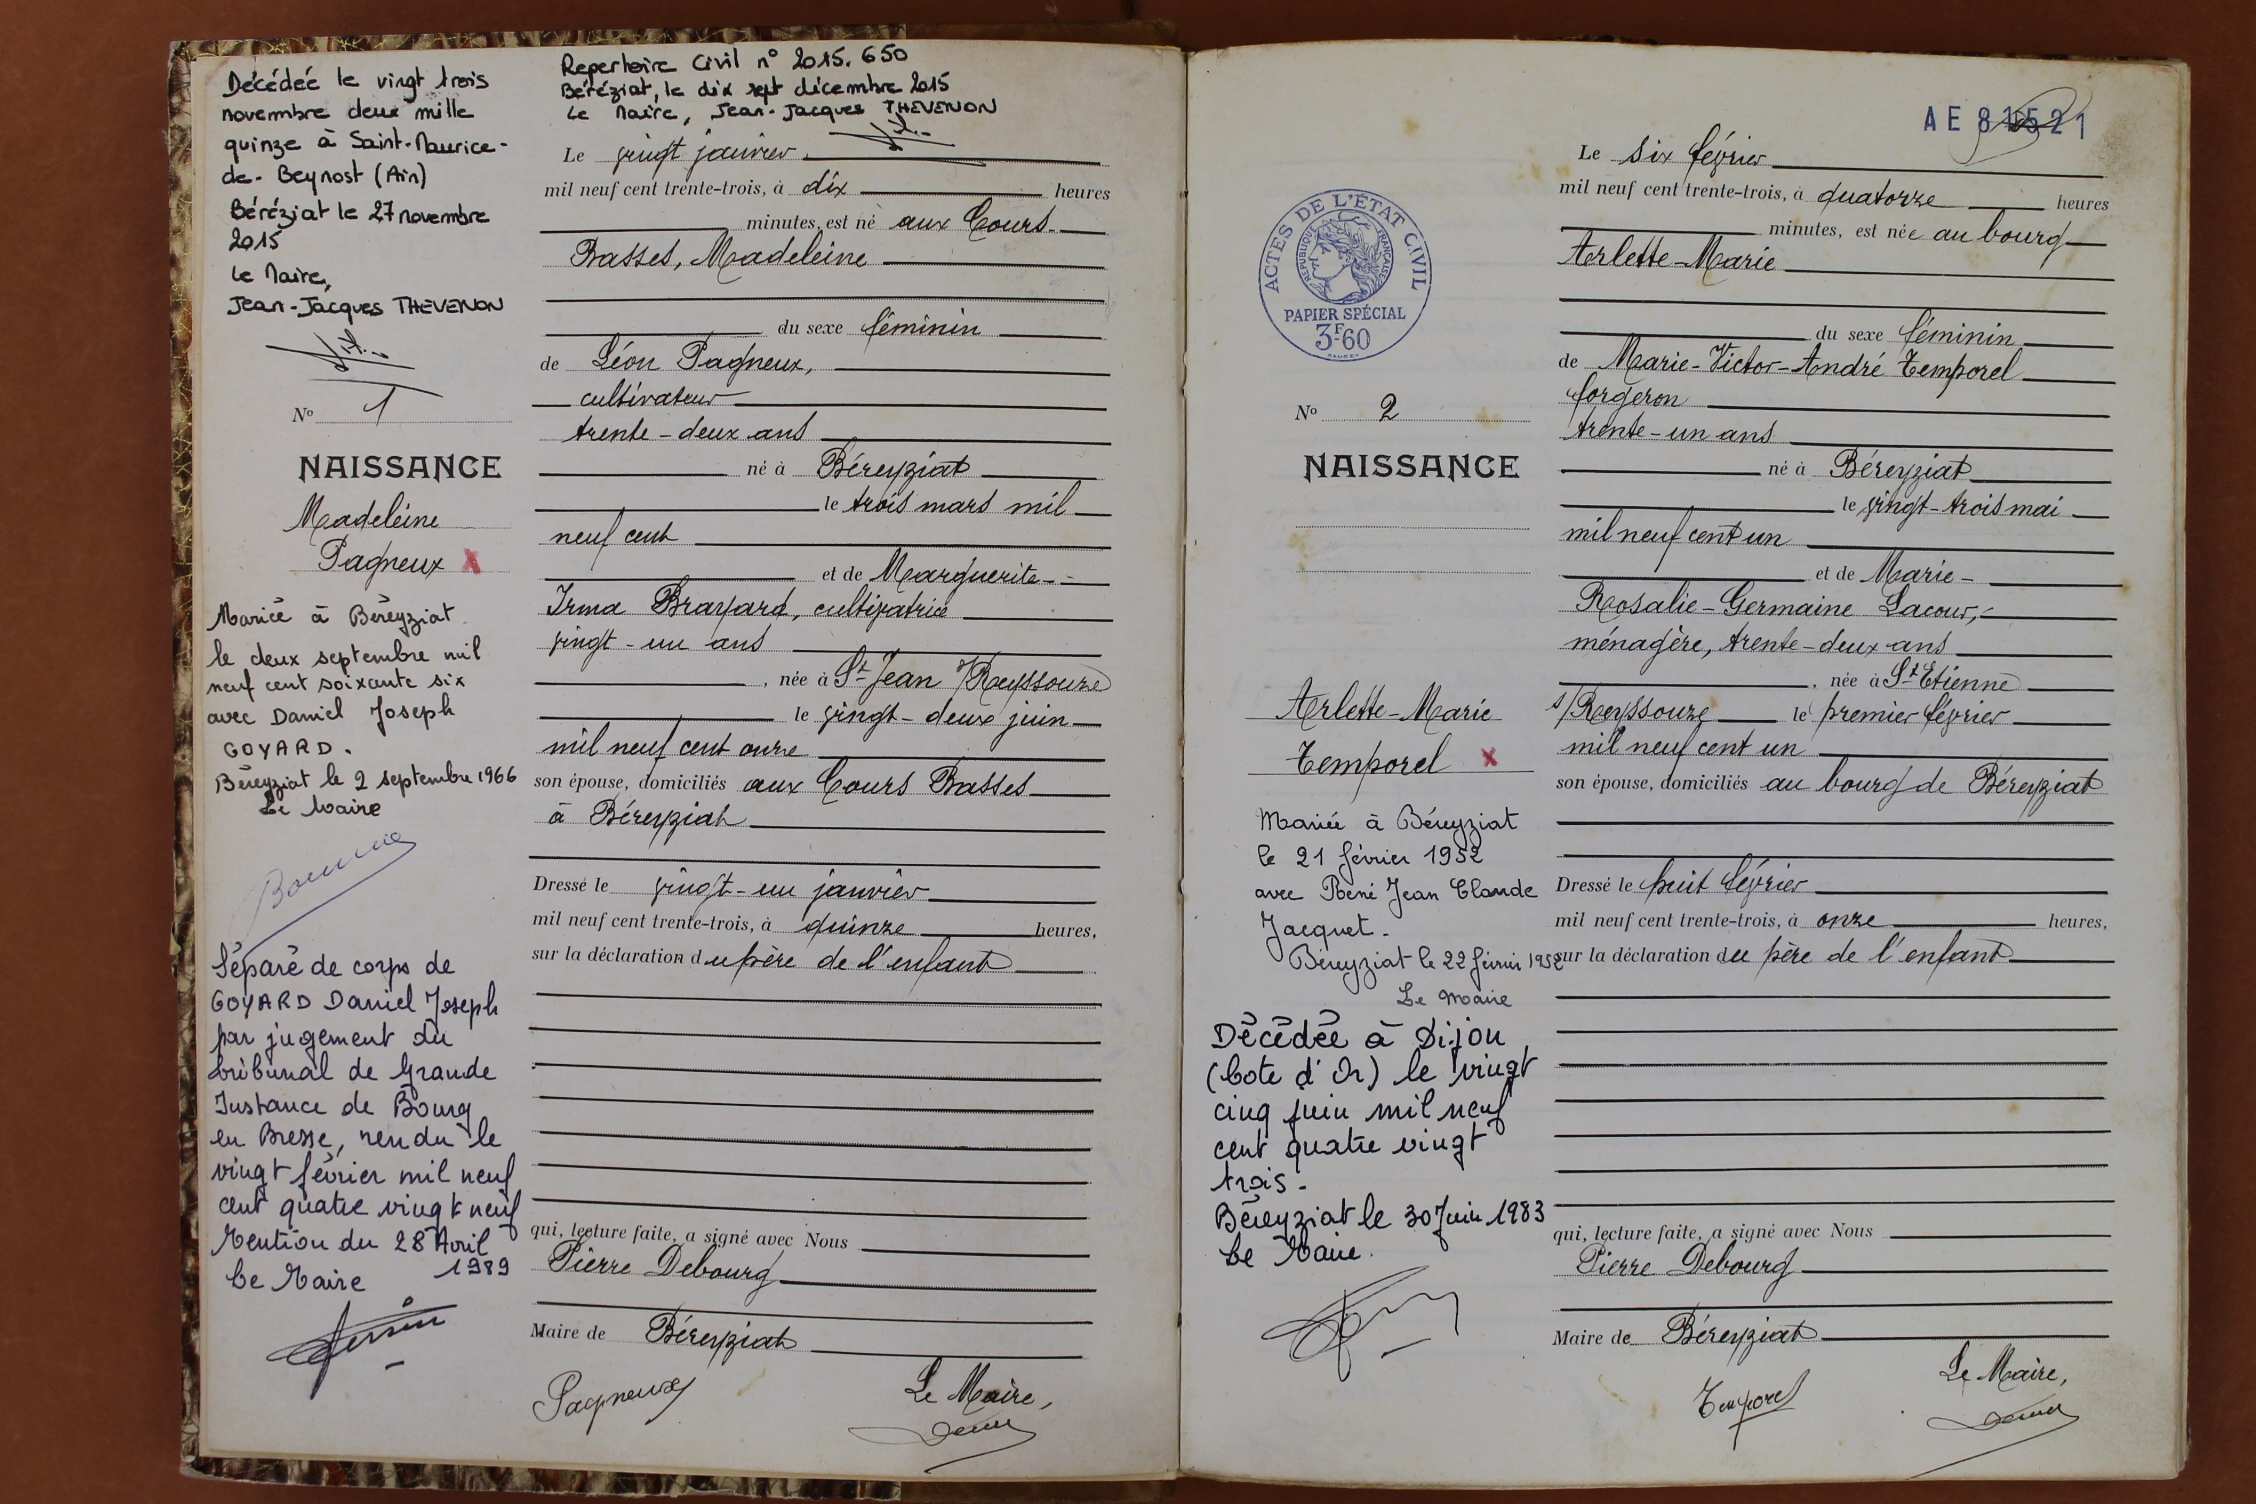 Décédée le vingt trois
novembre deux mille
quinze à Saint-Maurice-
de-Beynost (Ain)
Béréziat le 27 novembre
2015
Le Maire,
Jean-Jacques THEVENON
N° 1
NAISSANCE
Madeleine
Pagneux X
Mariée à Béreyziat
le deux septembre mil
neuf cent soixante six
avec Daniel Joseph
GOYARD.
Béreyziat le 2 septembre 1966
Le Maire
Séparé de corps de
GOYARD Daniel Joseph
par jugement du
tribunal de Grande
Instance de Bourg
en Bresse, rendu le
vingt février mil neuf
cent quatre vingt neuf
Mention du 28 Avril
1989
Le Maire
Repertoire Civil n° 2015.650
Béréziat, le dix sept décembre 2015
Le Maire, Jean-Jacques THEVENON
Le vingt janvier
mil neuf cent trente-trois, à dix heures
minutes, est né aux Cours-
Basses, Madeleine
du sexe féminin
de Léon Pagneux,
cultivateur
trente-deux ans
né à Béreyziat
le trois mars mil
neuf cent
et de Marguerite-
Irma Brayard, cultivatrice
vingt-un ans
, née à St Jean s/Reyssouze
le vingt-deux juin
mil neuf cent onze
son épouse, domiciliés aux Cours Basses
à Béreyziat
Dressé le vingt-un janvier
mil neuf cent trente-trois, à quinze heures,
sur la déclaration du père de l'enfant
qui, lecture faite, a signé avec Nous
Pierre Debourg
Maire de Béreyziat
Pagneux
Le Maire,
ACTES DE L'ÉTAT CIVIL
RÉPUBLIQUE FRANÇAISE
PAPIER SPÉCIAL
3F60
N° 2
NAISSANCE
Arlette-Marie
Temporel X
Mariée à Béreyziat
le 21 février 1952
avec René Jean Claude
Jacquet-
Béreyziat le 22 février 1952
Le Maire
Décédée à Dijon
(Cote d'Or) le vingt
cinq juin mil neuf
cent quatre vingt
trois-
Béreyziat le 30 Juin 1983
Le Maire.
AE 81521
Le six février
mil neuf cent trente-trois, à quatorze heures
minutes, est née au bourg
Arlette-Marie
du sexe féminin
de Marie-Victor-André Temporel
forgeron
trente-un ans
né à Béreyziat
le vingt-trois mai
mil neuf cent un
et de Marie-
Rosalie-Germaine Lacour,
ménagère, trente-deux ans
, née à St Etienne
s/Reyssouze le premier février
mil neuf cent un
son épouse, domiciliés au bourg de Béreyziat
Dressé le huit février
mil neuf cent trente-trois, à onze heures,
sur la déclaration du père de l'enfant
qui, lecture faite, a signé avec Nous
Pierre Debourg
Maire de Béreyziat
Temporel
Le Maire,